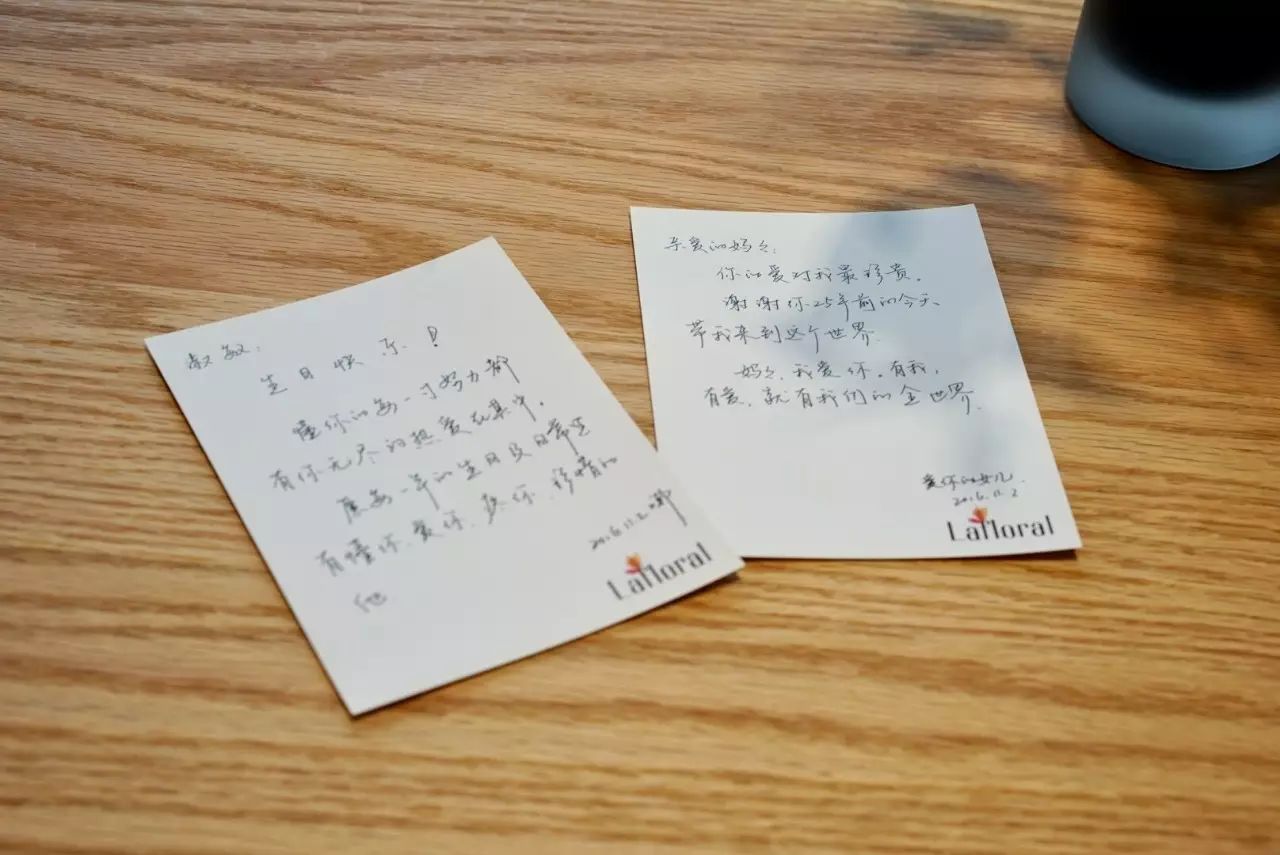 淑敏:
生日快乐!
懂你的每一寸努力都
有你无尽的热爱在其中。
愿每一年的生日及日常里
有懂你、爱你、疼你、珍惜你的
他
2016.11.2
Lafloral
亲爱的妈々:
你的爱对我最珍贵。
谢谢你25年前的今天、
带我来到这个世界.
妈々,我爱你。有我,
有爱,就有我们的全世界.
爱你的女儿
2016.11.2
Lafloral